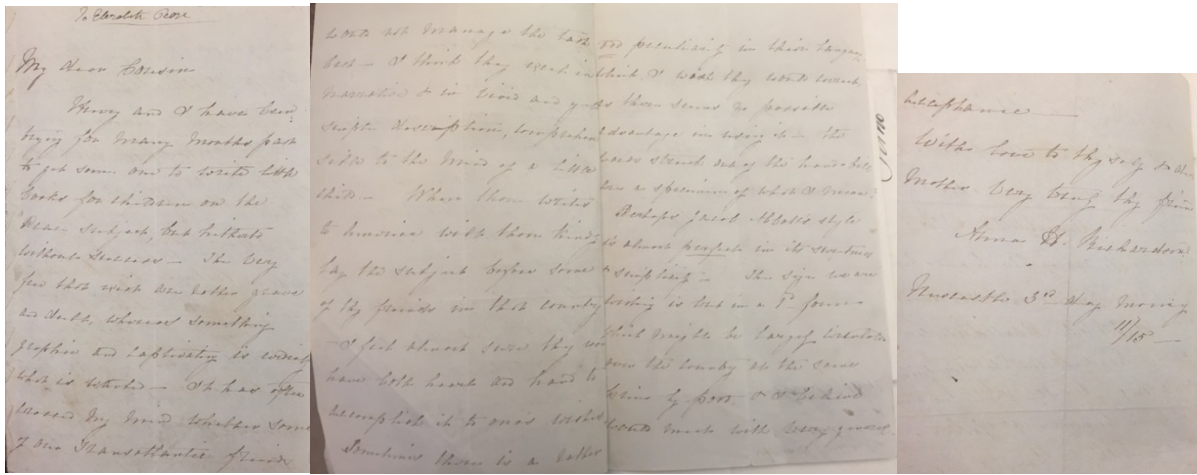 To Elizabeth Pease
My dear Cousin
Henry and I have been
trying for many months past
to get some one to write little
books for children on the
Peace subject, but hitherto
without success - The very
few that exist are rather grave
and dull, whereas something
graphic and captivating is evidently
what is wanted - It has often
crossed my mind whether some
of our Transatlantic friends
would not manage the task
best - I think they excel in
narrative & in vivid and
description, comprehen
sible to the mind of a little
child - When thou writes
to America wilt thou kindly
lay the subject before some
of thy friends in that country
- I feel almost sure they
have both heart and hand to
accomplish it to one's wishes
Sometimes there is a rather
odd peculiarity in their language
which I wish they would
as there seems no possible
advantage in using it - the
words struck out of the handbill
are a specimen of what I mean.
Perhaps Jacob Abbott's style
is almost perfect in its sweetness
& simplicity - The size we are
is that in a 1d form
which might be largely circulated
over the country at the same
price by post & I believe
would meet with very general
acceptance -
With love to thy self & dear
Mother very truly thy friend
Anna H. Richardson
Newcastle 3rd day morning
11/15 -